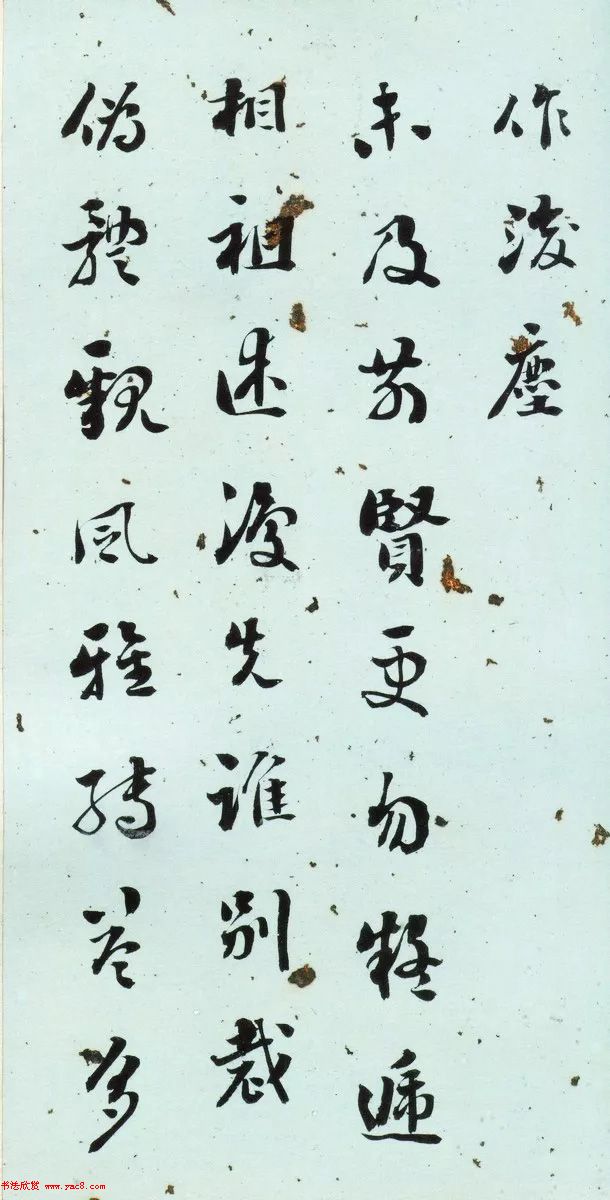 作後塵
未及前賢更勿疑遞
相祖述復先誰別裁
偽體親風雅轉益多
书法欣赏 www.yac8.com